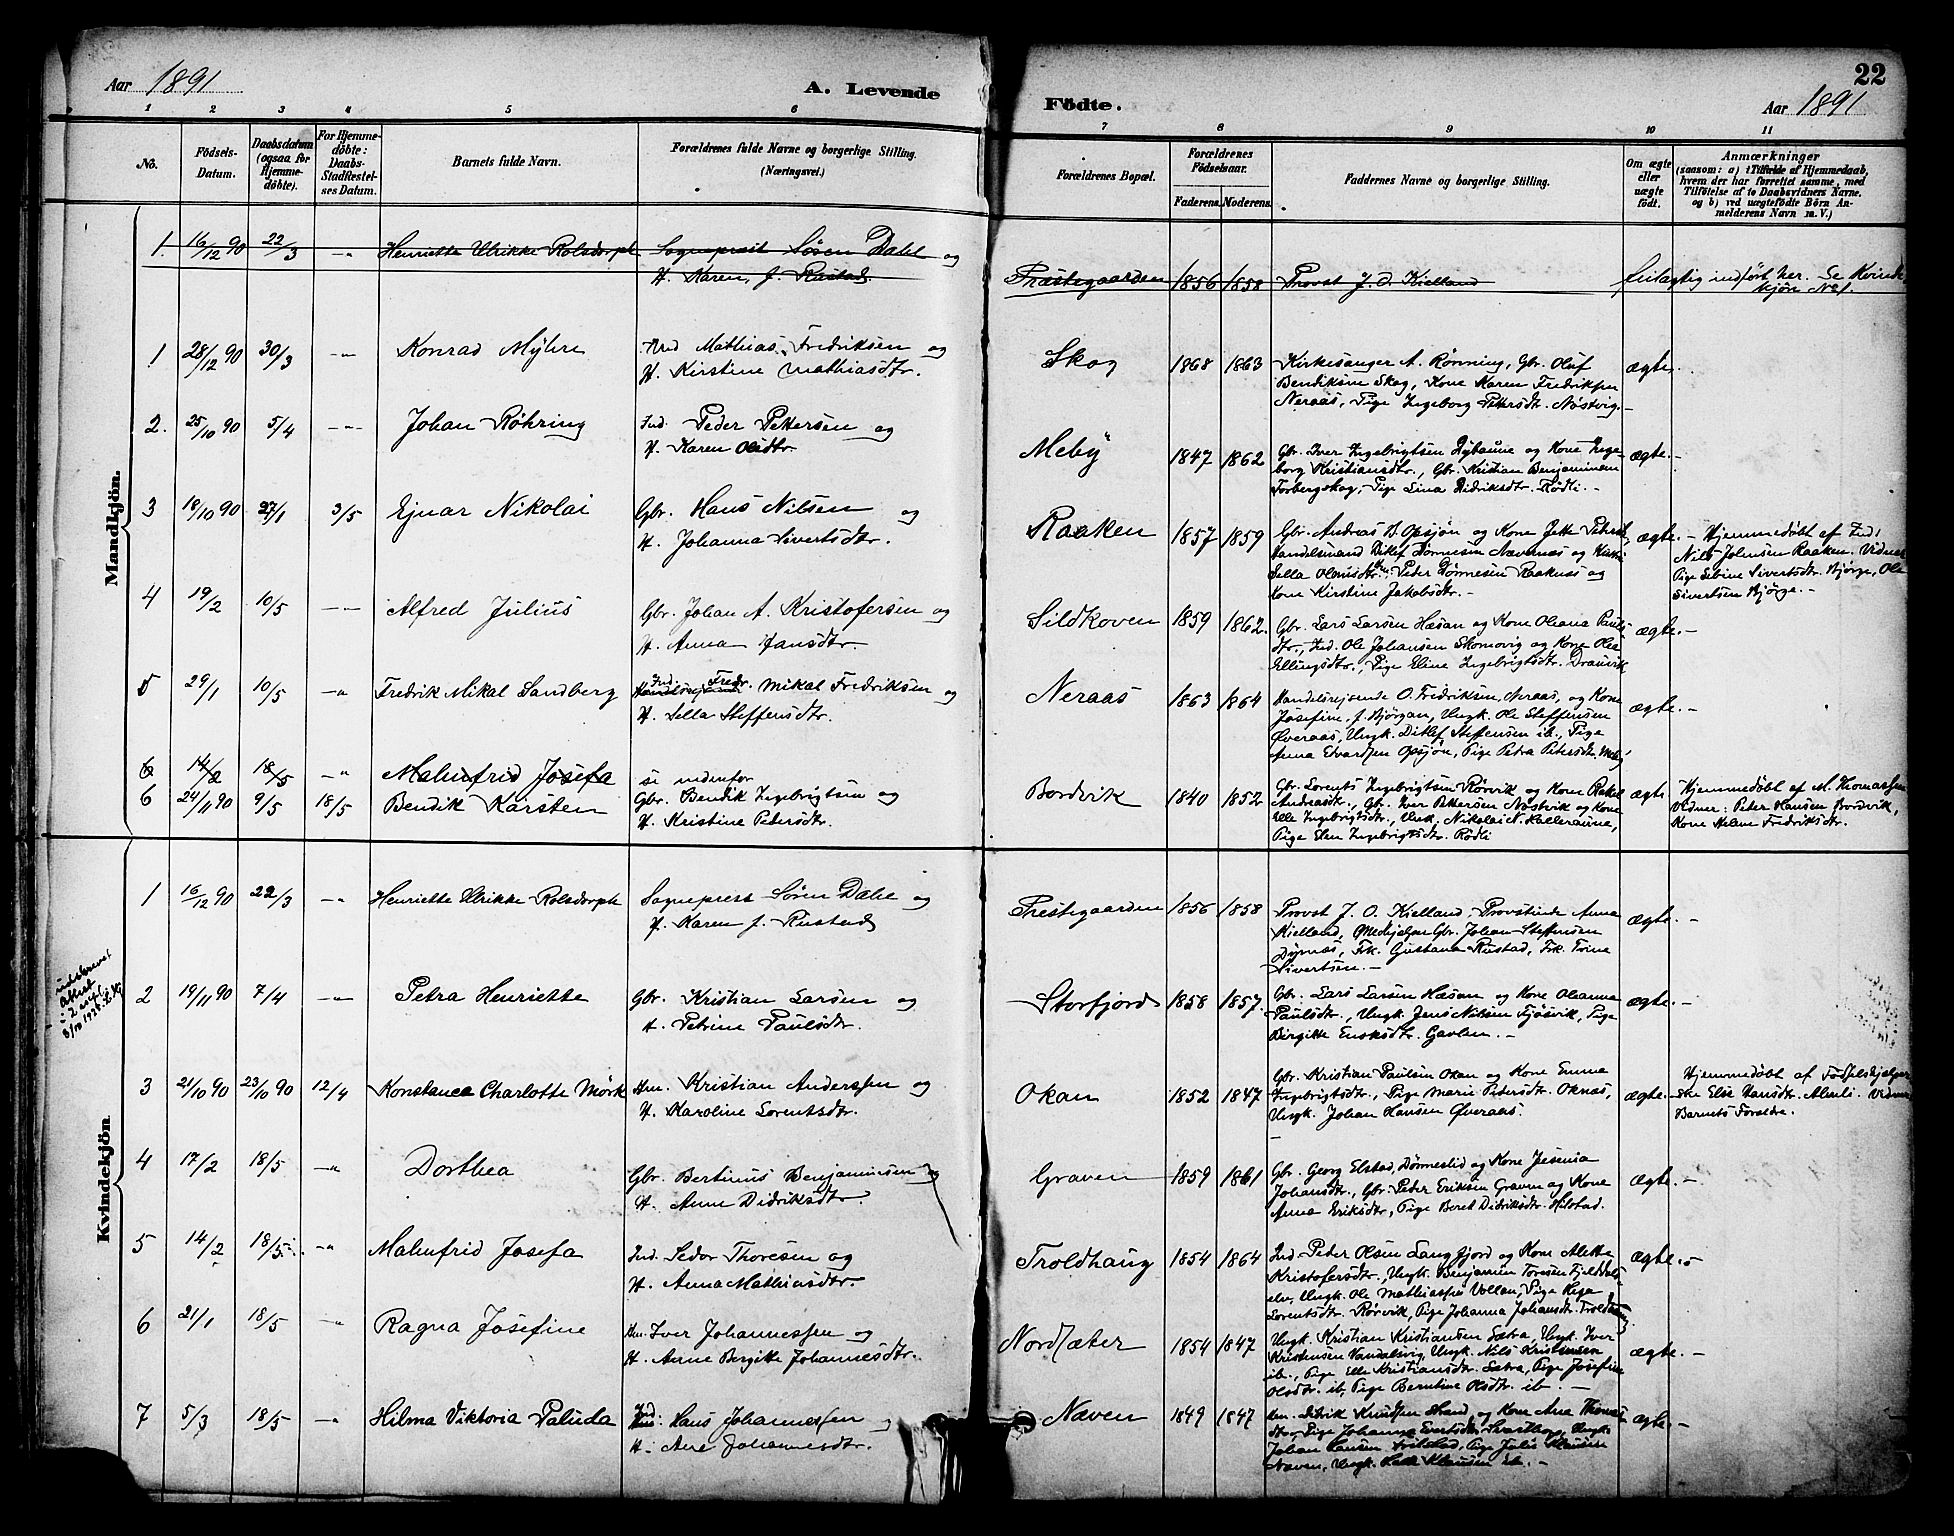 Aar 1891
A. Levende
Födte.
22
Aar 1891
1 2 3 4 5 6 7 8 9 10 11
No.
Födsels-Datum.
Daabsdatum (ogsaa for Hjemmedöbte).
For Hjemmedöbte: Daabs-Stadfæstelses Datum.
Barnets fulde Navn.
Forældrenes fulde Navne og borgerlige Stilling. (Næringsvei.)
Forældrenes Bopæl.
Forældrenes Födselsaar.
Faderens. Moderens.
Faddernes Navne og borgerlige Stilling.
Om ægte eller uægte födt.
Anmærkninger
(saasom: a) i Tilfælde af Hjemmedaab, hvem der har forrettet samme, med Tilföielse af to Daabsvidners Navne. og b) ved uægtefödte Börn Anmelderens Navn m. V.)
Mandkjön.
1. 16/12 90 22/3 -"- Henriette Ulrikke Rolsdorph Sogneprest Sören Dahl og
H. Karen, f. Rustad.
Præstegaarden 1856 1858 Provst J. O. Kielland feilagtig indfört her. Se Kvindekjön No 1.
1 28/12 90 30/3 -"- Konrad Myhre Ind Mathias Fredriksen og
H. Kirstine Mathiasdtr.
Skog 1868 1863 Kirkesanger A. Rønning, Gbr. Oluf
Bendiksen Skog, Kone Karen Fredriksen
Neraas, Pige Ingeborg Petersdtr. Nøstvig. ægte.
2. 25/10 90 5/4 -"- Johan Röhring Ind. Peder Pettersen og
H. Karen Olsdtr.
Meby 1847 1862 Gbr. Iver Ingebrigtsen Nybaune og Kone Inge-
borg Kristiansdtr., Gbr. Kristian Benjaminsen
Torbergskog, Pige Lina Didriksdtr. Rødli. ægte.
3 18/10 90 27/1 3/5 Ejnar Nikolai Gbr. Hans Nilsen og
H. Johanna Sivertsdtr.
Raaken 1857 1859 Gbr. Andreas B. Opsjøn og Kone Jette
Handelsmand Ditlef Dønnesen Nævernæs og
Sella Olausdtr. Peter Dønnesen Raaknæs og
Kone Kirstine Jakobsdtr. ægte. Hjemmedøbt af Ind.
Nils Johnsen Raaken. Vidner
Pige Sebine Sivertsdtr. Bjørge, Ole
Sivertsen Bjørge.
4 19/2 10/5 -"- Alfred Julius Gbr. Johan A. Kristofersen og
H. Anna Jansdtr.
Sildkoven 1859 1862. Gbr. Lars Larsen Hæsan og Kone Oleana Pauls-
dtr., Ind. Ole Johansen Skomovig og Kone
Ellingsdtr., Pige Eline Ingebrigtsdtr. ægte.
5 29/1 10/5 -"- Fredrik Mikal Sandberg Ind. Fredr. Mikal Fredriksen og
H. Sella Steffensdtr.
Neraas 1863 1864 Handelsrejsende O. Fredriksen Neraas, og Kone
Josefine f. Bjørgan, Ungk. Ole Steffensen
Øveraas, Ungk. Ditlef Steffensen ib., Pige
Anna Edvardsen Opsjøn, Pige Petra Petersdtr. Meby ægte.
6 14/2 18/5 -"- Malmfrid Josefa se nedenfor
6 24/11 90 9/5 18/5 Bendik Karsten Gbr. Bendik Ingebrigtsen og
H. Kristine Petersdtr.
Bordvik 1840 1852 Gbr. Lorents Ingebrigtsen Rørvik og Kone Rakel
Andreasdtr., Gbr. Iver Pettersen Nøstvik og Kone
Elle Ingebrigtsdtr., Ungk. Nikolai N. Kalleraune,
Pige Elen Ingebrigtsdtr. Rødli ægte Hjemmedøbt af M. Thomassen
Vidner: Peter Hansen Bordvik,
Kone Helene Fredriksdtr.
Kvindekjön
1 16/12 90 22/3 -"- Henriette Ulrikke Rolsdorph Sogneprest Sören Dahl og
H. Karen f. Rustad
Prestegaarden 1856 1858 Provst J. O. Kielland, Provstinde Anna
Kielland, Gbr. Johan Steffensen
Dypnæs, Frk. Gustava Rustad, Frk. Trine
Sivertsen. ægte.
Attest
2 19/11 90 7/4 -"- Petra Henriette Gbr. Kristian Larsen og
H. Petrine Paulsdtr.
Storfjord 1858 1857. Gbr. Lars Larsen Hæsan og Kone Oleanna
Paulsdtr., Ungk. Jens Nilsen Fjøsvik, Pige
Bergitte Gavlen. ægte.
3 21/10 90 23/10 90 12/4 Konstance Charlotte Mörk Hm. Kristian Anderssen og
H. Karoline Lorentsdtr.
Okan 1852 1847 Gbr. Kristian Paulsen Okan og Kone Emma
Ingebrigtsdtr., Pige Marie Petersdtr. Oknæs,
Ungk. Johan Hansen Øveraas. ægte. Hjemmedøbt af Fødselshjelper-
ske Else Hansdtr. Vidner
Barnets Foreldre.
4 17/2 18/5 -"- Dorthea Gbr. Bertinus Benjaminsen og
H. Anne Didriksdtr
Graven 1859 1861 Gbr. Georg Elstad, Dønneslid og Kone Jesenia
Johansdtr., Gbr. Peder Eriksen Graven og Kone
Anna Eriksdtr, Pige Beret Didriksdtr. Hilstad. ægte.
5 14/2 18/5 -"- Malmfrid Josefa Ind. Sedor Thoresen og
H. Anna Mathiasdtr.
Troldhaug 1854 1864 Ind. Peter Olsen Langfjord og Kone Alette
Kristofersdtr., Ungk. Benjamin Toresen Fjelddals-
elv, Ungk. Ole Mathiassen Vollan, Pige
Lorentsdtr. Rørvik, Pige Johanna Johansdtr. Troldhaug ægte.
6 21/1 18/5 -"- Ragna Josefine Hm. Iver Johannessen og
H. Anne Bergitte Johannesdtr.
Nordsæter 1854 1847 Ungk. Kristian Kristiansen Sætra, Ungk. Iver
Kristensen Vandalsvig, Ungk. Nils Kristensen
ib., Pige Elle Kristiansdtr. Sætra, Pige Josefine
Olsdtr. ib, Pige Berntine Olsdtr. ib. ægte.
7 5/3 18/5 -"- Hilma Viktoria Paluda Ind Hans Johannessen og
H. Ane Johannesdtr.
Næven 1849 1847 Hm. Didrik Knudsen Strand og Kone Ane
Pige Johanna Ungk.
Johan Hansen Pige Julie Klausen
Næven, Ungk. Klausen ib. ægte.